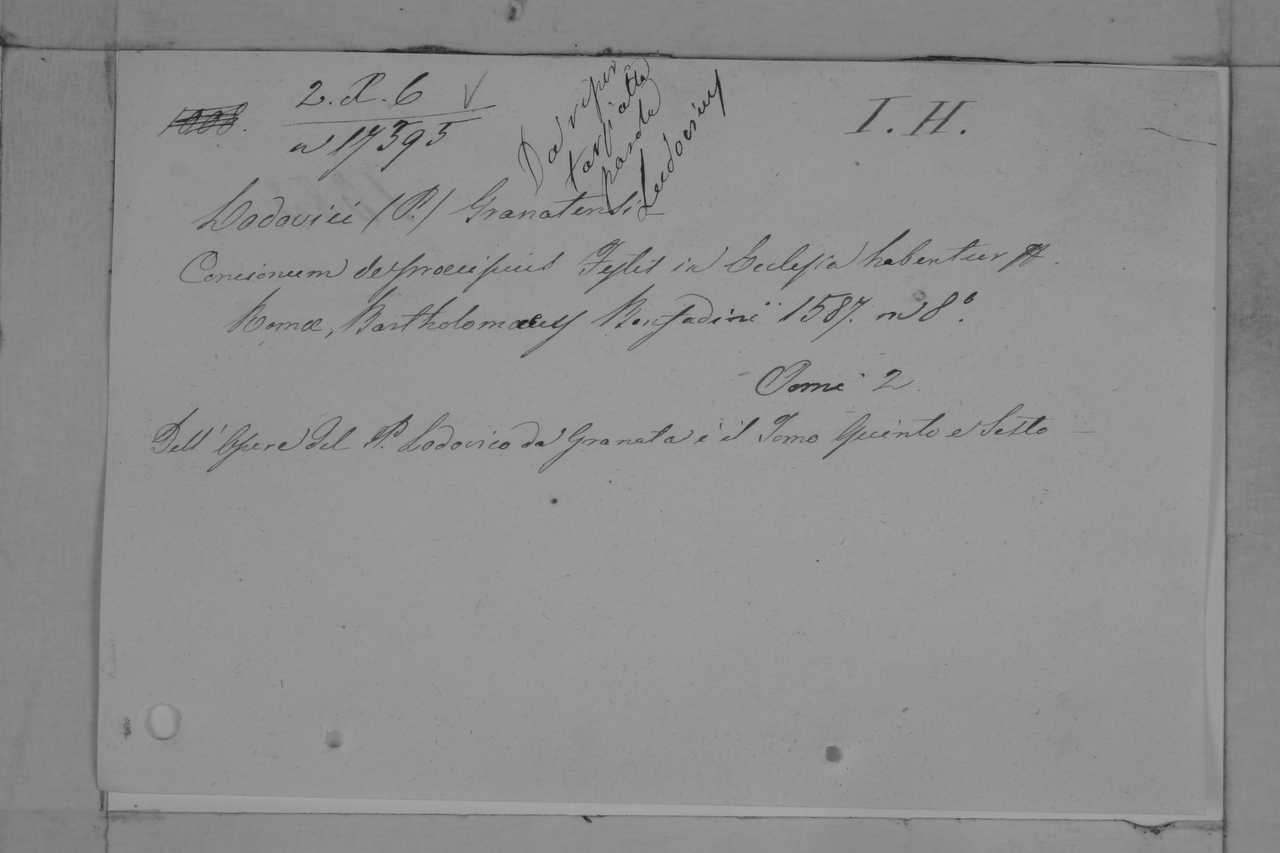 2. X. 6
n 17395
I. H.
Da ripor
tarsi alla
parola
Ludovicus
Lodovici (P.) Granatensis
Concionum de præcipuis Festis in Ecclesia habentur
Romæ, Bartholomæus Bonfadini 1587. in 8°.
Tomi 2
Dell' Opere del P. Lodovico da Granata è il Tomo Quinto e Sesto